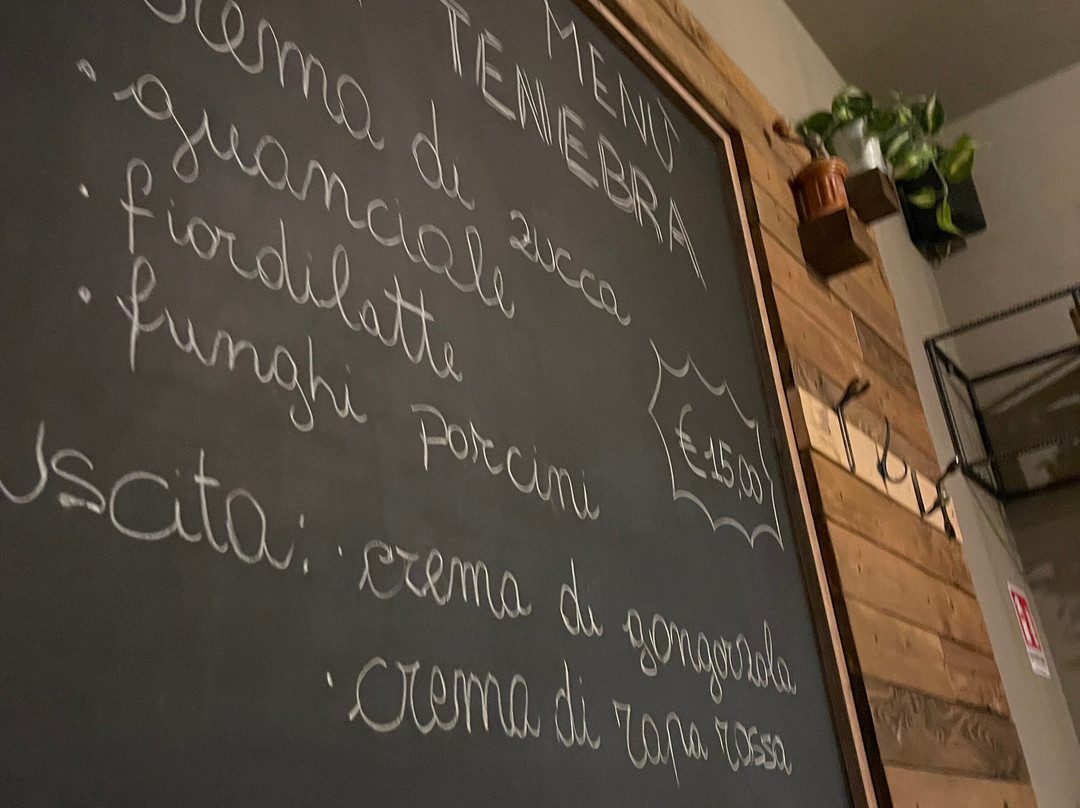 MENU
TENEBRA
crema di zucca
guanciale
fiordilatte
funghi porcini
€15,00
Uscita: crema di gongorzola
crema di rapa rossa